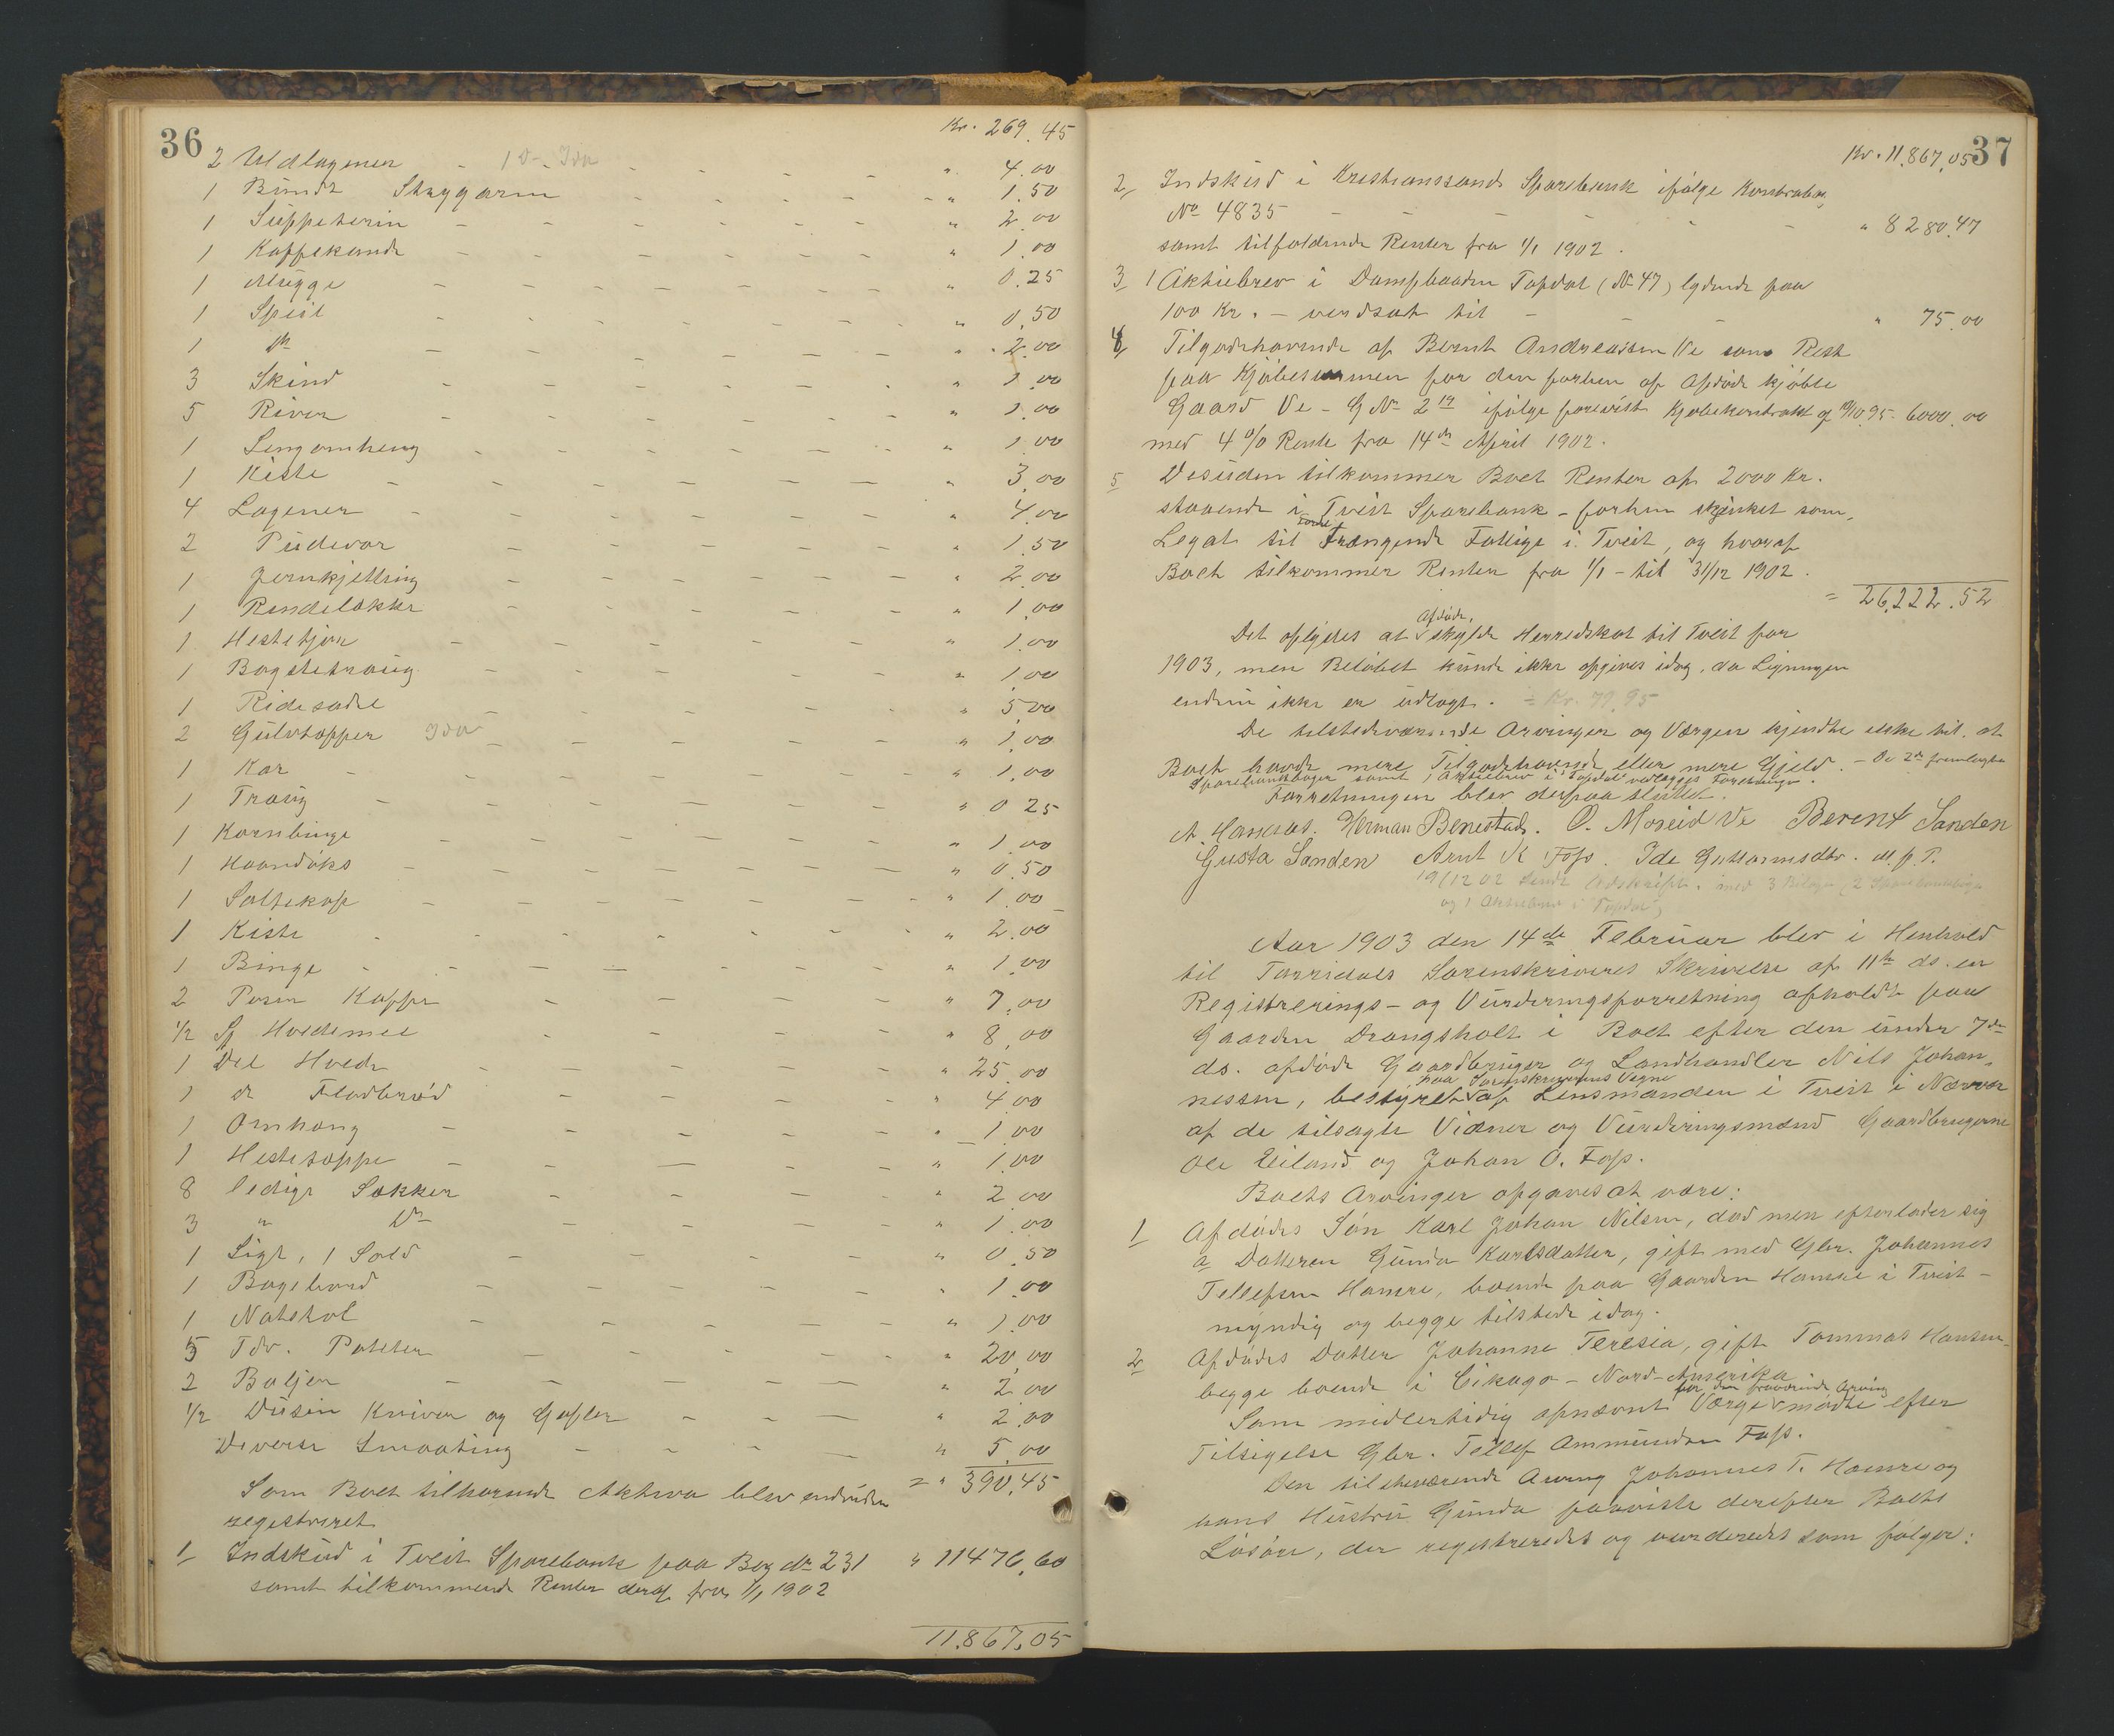 36
Kr. 269.45
2 Uldlagener - 1 D - Ida - - - " 4.00
1 Bundt Stryggarn - - - - " 1.50
1 Suppeterin - - - - - " 2.00
1 Kaffekande - - - - - " 1.00
1 Mugge - - - - - " 0.25
1 Speil - - - - - " 0.50
1 Do - - - - - " 2.00
3 Skind - - - - - " 1.00
5 River - - - - - " 1.00
1 Sengomheng - - - - - " 1.00
1 Kiste - - - - - " 3.00
4 Lagener - - - - - " 4.00
2 Pudevar - - - - - " 1.50
1 Jernkjetting - - - - - " 2.00
1 - - - - " 1.00
1 - - - - " 1.00
1 Bagstetraug - - - - " 1.00
1 Ridesadel - - - - " 5.00
2 Gulvtopper Ida - - - - " 1.00
1 Kar - - - - - " 1.00
1 Traug - - - - - " 0.25
1 Kornbinge - - - - - " 1.00
1 Haandøks - - - - - " 0.50
1 Saltekop - - - - - " 1.00
1 Kiste - - - - - " 2.00
1 Binge - - - - - " 1.00
2 Poser Kaffe - - - - " 7.00
1/2 Sp Hvedemel - - - - " 8.00
1 Del Hvede - - - - " 25.00
1 do Fladbrød - - - - " 4.00
1 Omhang - - - - - " 1.00
1 - - - - " 1.00
8 ledige Sækker - - - - " 2.00
3 " Do - - - - " 1.00
1 Sigt, 1 Sold - - - - " 0.50
1 Bagebord - - - - " 1.00
1 - - - - " 1.00
5 Tdr. Poteter - - - - " 20.00
2 Baljer - - - - - " 2.00
1/2 Dusin Kniver og Gafler - - - " 2.00
Diverse Smaating - - - - " 5.00
= " 390.45
Som Boet tilhørende Aktiva blev endvidere
registreret
1 Indskud i Tveit Sparebank paa Bog No 231 " 11476.60
samt tilkommende Renter deraf fra 1/1 1902
11.867.05
37
Kr. 11.867.05
2 Indskud i Kristianssands Sparebank ifølge Kontrabog
No 4835 - - - - - " 8280.47
samt tilfaldende Renter fra 1/1 1902.
3 1 Aktiebrev i Dampbaaden Topdal (No 47) lydende paa
100 Kr. - verdsat til - - - " 75.00
4 Tilgodehavende af Bernt Andreassen Ve som Rest
paa Kjøbesummen for den forhen af Afdøde kjøbte
Gaard Ve - G No 2 ifølge forevist Kjøbekontrakt af 95 - 6000.00
med 4 % Rente fra 14de April 1902.
5 Desuden tilkommer Boet Renter af 2000 Kr.
staaende i Tveit Sparebank - forhen skjenket som
Legat til Trængende Fattige i Tveit, og hvoraf
Boet tilkommer Renten fra 1/1 - til 31/12 1902.
= 26.222.52
Afdøde
Det oplystes at skylde Herredskat til Tveit for
1903, men Beløbet kunde ikke opgives idag, da Ligningen
endnu ikke er udlagt. = Kr. 79.95
De tilstedeværende Arvinger og Værgen kjendte ikke til, at
Boet havde mere Tilgodehavende eller mere Gjeld. - De 2de fremlagte
Sparebankbøger samt 1 Aktiebrev i Topdal vedlegges Forretningen.
Forretningen blev derpaa sluttet.
Herman Benestad. O. Moseid Ve Berent Sanden
Gusta Sanden Arnt K Foss. Ide Guttormsdtr. m. p. P.
19/12 02 sendt Udskrift. med 3 Bilage (2 Sparebankbøger
og 1 Aktiebrev i Topdal)
Aar 1903 den 14de Februar blev i Henhold
til Torridals Sorenskriveres Skrivelse af 11te ds. en
Registrerings- og Vurderingsforretning afholdt paa
Gaarden Drangsholt i Boet efter den under 7de
ds. afdøde Gaardbruger og Landhandler Nils Johan-
paa Sorenskriverens Vegne
nessen, bestyret af Lensmanden i Tveit i Nærvær
af de tilsagte Vidner og Vurderingsmænd Gaardbrugerne
Ole Eiland og Johan O. Foss.
Boets Arvinger opgaves at være:
1 Afdødes Søn Karl Johan Nilsen, død men efterlader sig
a Datteren Gunda Karlsdatter, gift med Gbr. Johannes
Tellefsen Hamre, boende paa Gaarden Hamre i Tveit -
myndig og begge tilstede idag.
2 Afdødes Datter Johanne Teresia, gift Tommas Hansen
begge boende i Cikago - Nord-Amerika
for den fraværende Arving
Som midlertidig opnævnt Værge mødte efter
Tilsigelse Gbr. Tellef Ammundsen Foss.
Den tilstedeværende Arving Johannes T. Hamre og
hans Hustru Gunda paaviste derefter Boets
Løsøre, der registreredes og vurderedes som følger: